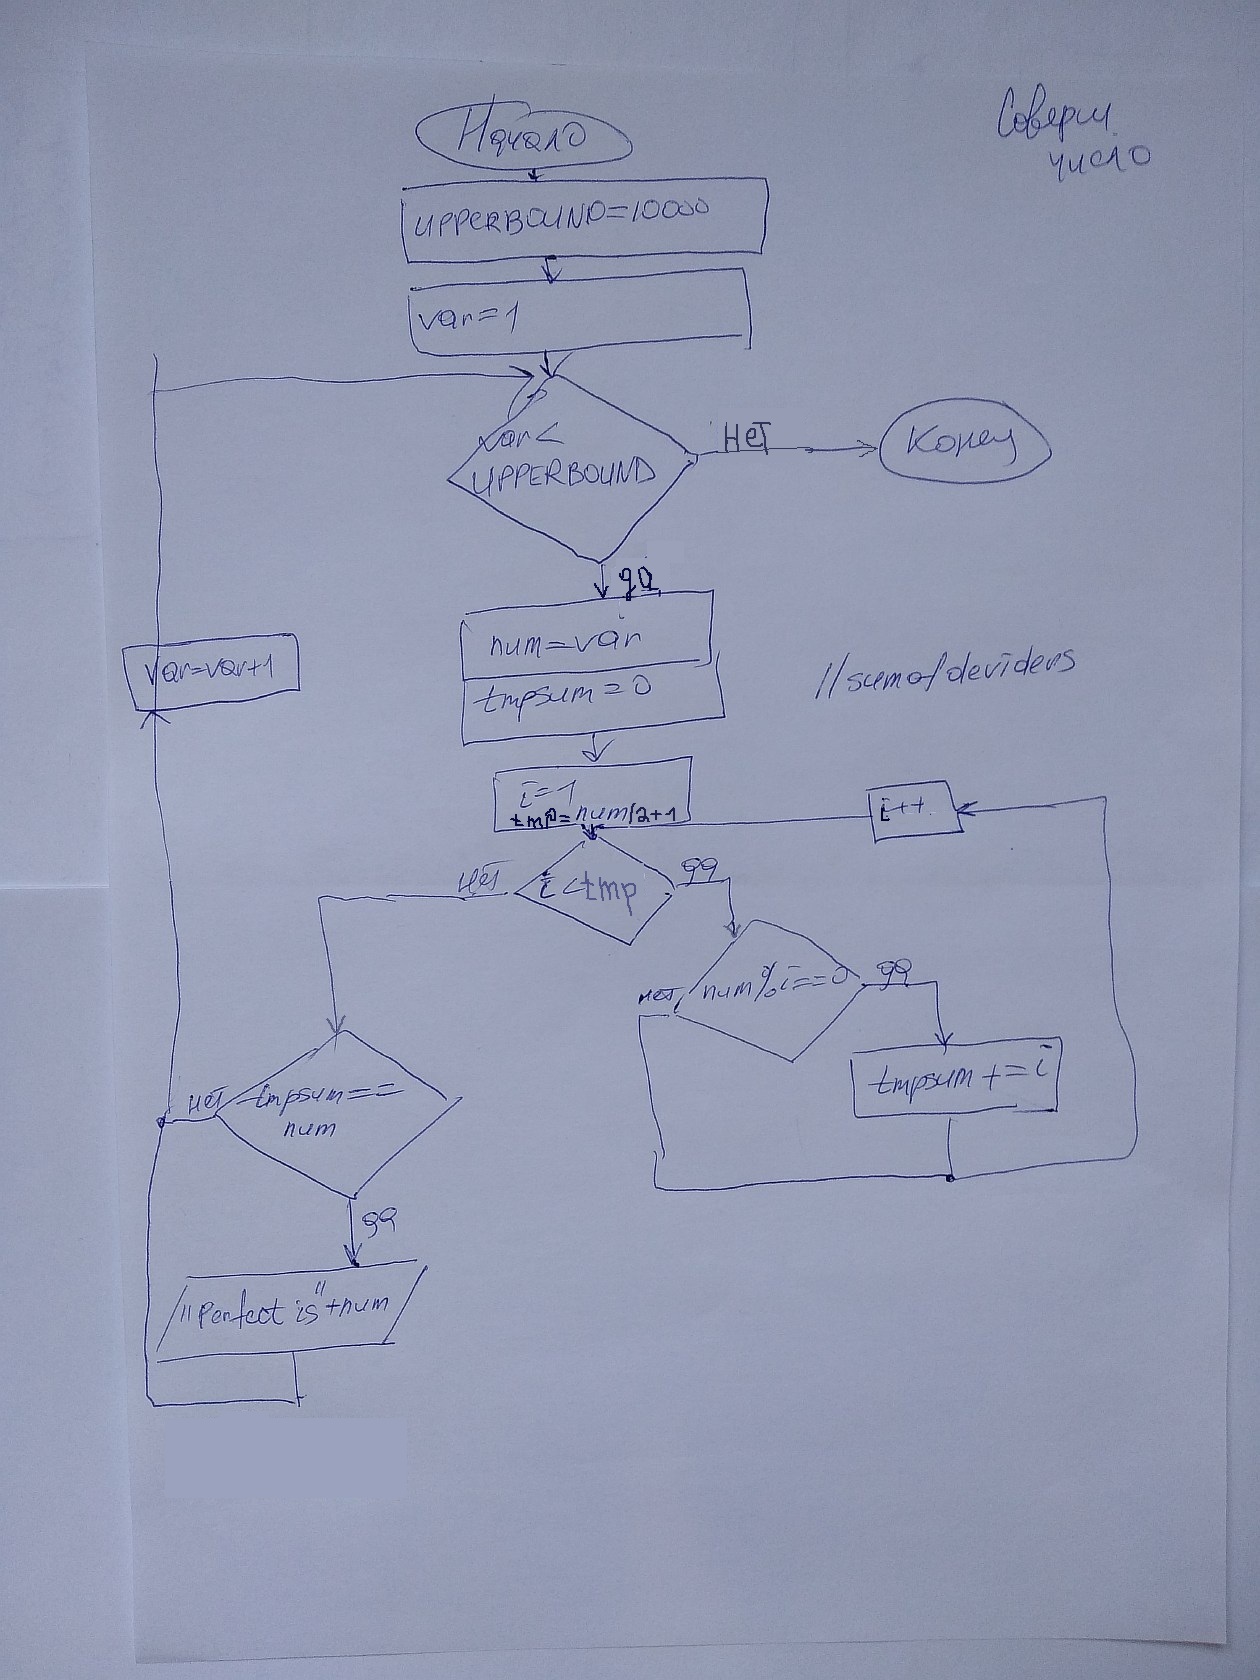 Соверш
число
Начало
UPPERBOUND=10000
var=1
var<
UPPERBOUND
нет
Конец
да
num=var
tmpsum=0
var=var+1
//sumofdeviders
i=1
tmp=num/2+1
i++
нет
i<tmp
да
нет
num%i==0
да
tmpsum+=i
нет
tmpsum==
num
да
"Perfect is"+num